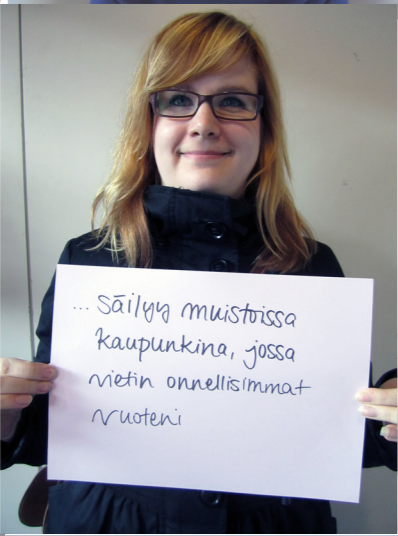 ... säilyy muistoissa
kaupunkina, jossa
vietin onnellisimmat
vuoteni